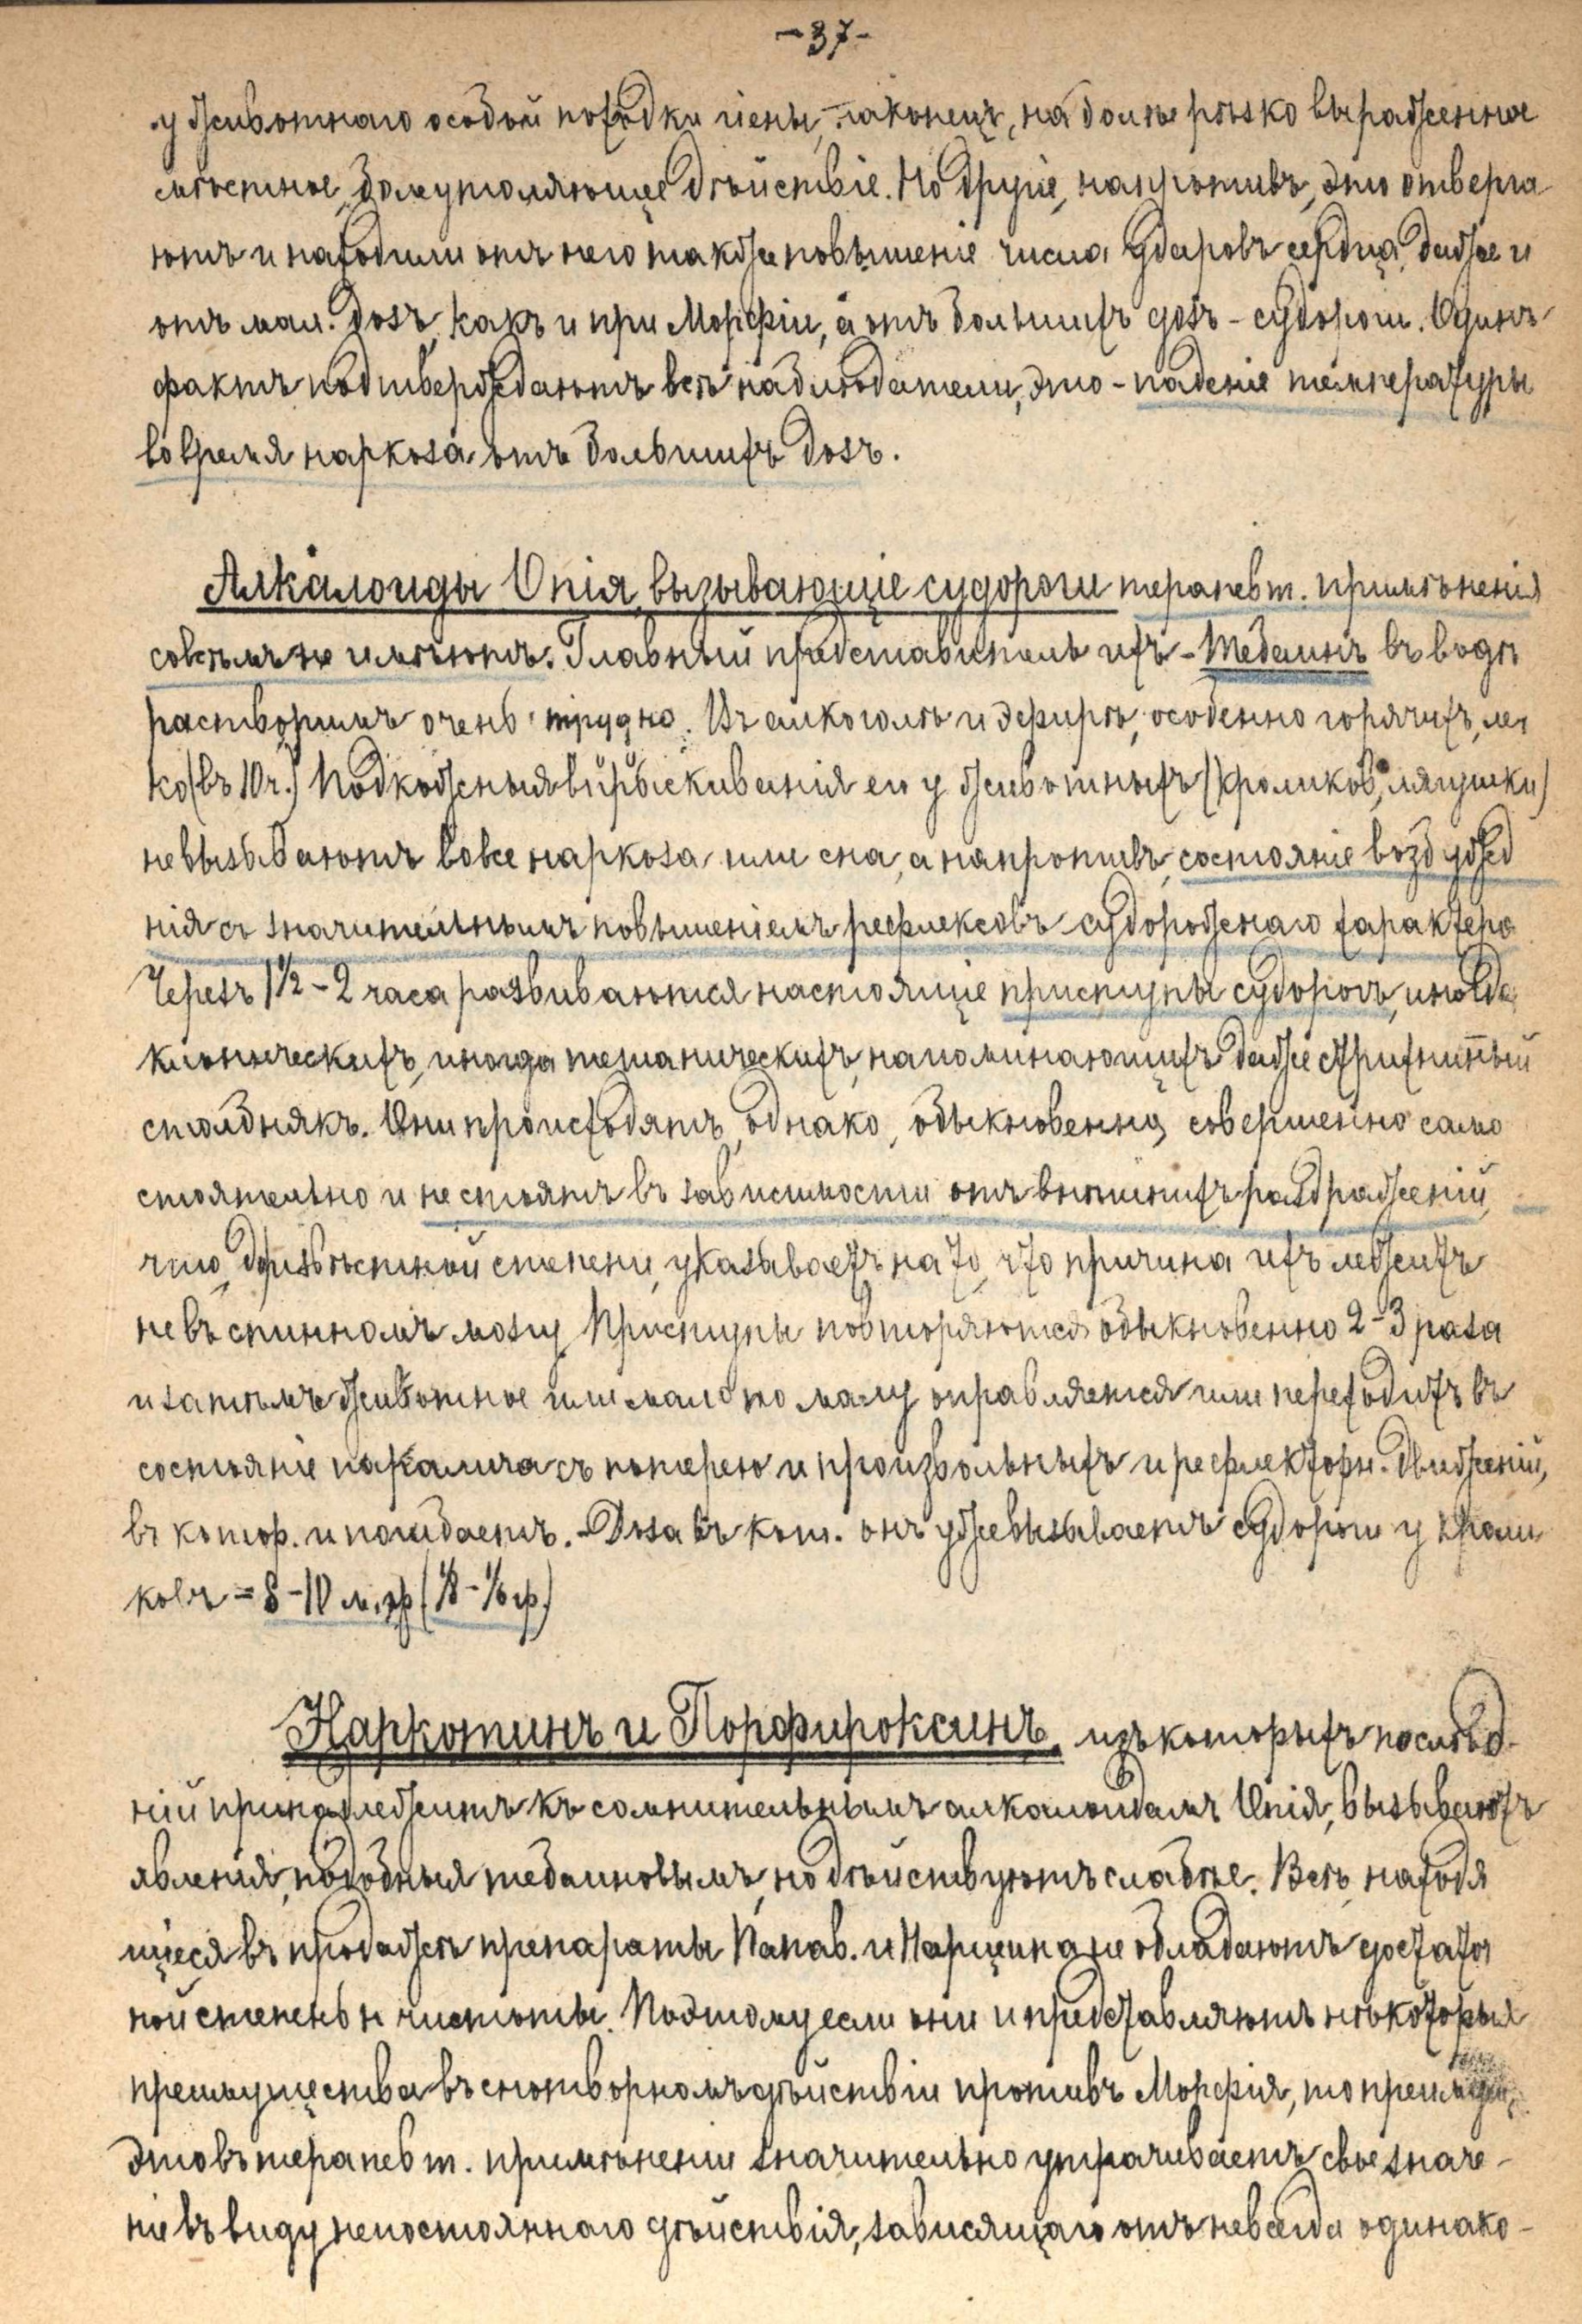 -37-
у животнаго особой походки гіены, наконецъ, на болѣе рѣзко выраженное
мѣстное, болеутоляющее дѣйствіе. Но другіе, напротивъ, это отверга
ютъ и находили отъ него также повышеніе числа ударовъ сердца, даже и
отъ мал. дозъ, какъ и при Морфіи, а отъ большихъ дозъ - судороги. Одинъ
фактъ подтверждаютъ всѣ наблюдатели, это - паденіе температуры
во время наркоза отъ большихъ дозъ.
Алкалоиды Опія, вызывающіе судороги терапевт. примѣненія
совсѣмъ не имѣютъ. Главный представитель ихъ - Тебаинъ въ водѣ
растворимъ очень трудно. Въ алкоголѣ и эфирѣ, особенно горячихъ, лег
ко (въ 10 ч.) Подкожныя впрыскиванія его у животныхъ (кроликовъ, лягушки)
не вызываютъ вовсе наркоза или сна, а напротивъ, состояніе возбужд
нія съ значительнымъ повышеніемъ рефлексовъ судорожнаго характера
Черезъ 1½ - 2 часа развиваются настоящіе приступы судорогъ, иногда
клоническихъ, иногда тетаническихъ, напоминающихъ даже стрихнинный
столбнякъ. Они происходятъ, однако, обыкновенно, совершенно само
стоятельно и не стоятъ въ зависимости отъ внѣшнихъ раздраженій,
что, до извѣстной степени, указываетъ на то, что причина ихъ лежитъ
не въ спинномъ мозгу. Приступы повторяются обыкновенно 2-3 раза
и затѣмъ животное или мало по малу оправляется или переходитъ въ
состояніе паралича съ потерею и произвольныхъ и рефлекторн. движеній,
въ котор. и погибаетъ. - Доза въ кот. онъ уже вызываетъ судороги у кроли
ковъ = 8-10 м.гр (⅛ - ⅙ гр.)
Наркотинъ и Порфироксинъ, изъ которыхъ послѣд-
ній принадлежитъ къ сомнительнымъ алкалоидамъ Опія, вызываютъ
явленія, подобныя тебаиновымъ, но дѣйствуютъ слабѣе. Всѣ, находя
щіеся въ продажѣ препараты Папав. и Нарцеина не обладаютъ достаточ
ной степенью чистоты. Поэтому если они и представляютъ нѣкоторыя
преимущества въ снотворномъ дѣйствіи противъ Морфія, то преимущ.
это въ терапевт. примѣненіи значительно утрачиваетъ свое значе-
ніе въ виду непостояннаго дѣйствія, зависящаго отъ не всегда одинако-